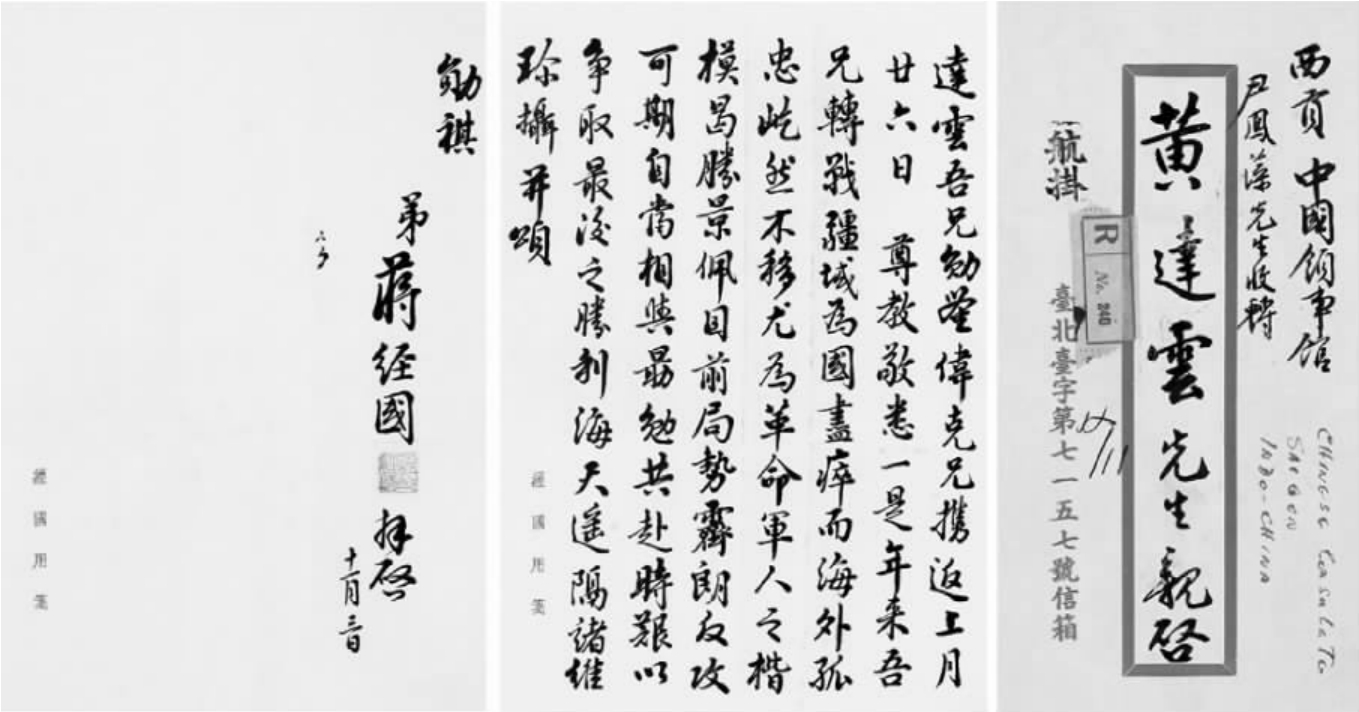 西貢 中國領事館
尹鳳藻先生收轉
CHINESE Consulate
SAIGON
INDO-CHINA
黃達雲先生親啓
航掛
R
No. 240
臺北臺字第七一五七號信箱
達雲吾兄勛鑒偉克兄攜返上月
廿六日 尊教敬悉一是年来吾
兄轉戰疆域為國盡瘁而海外孤
忠屹然不移尤為革命軍人之楷
模曷勝景佩目前局勢霽朗反攻
可期自當相與勗勉共赴時艱以
爭取最後之勝利海天遙隔諸維
珍攝并頌
經國用箋
勛祺
弟蔣經國拜啓
經國用箋